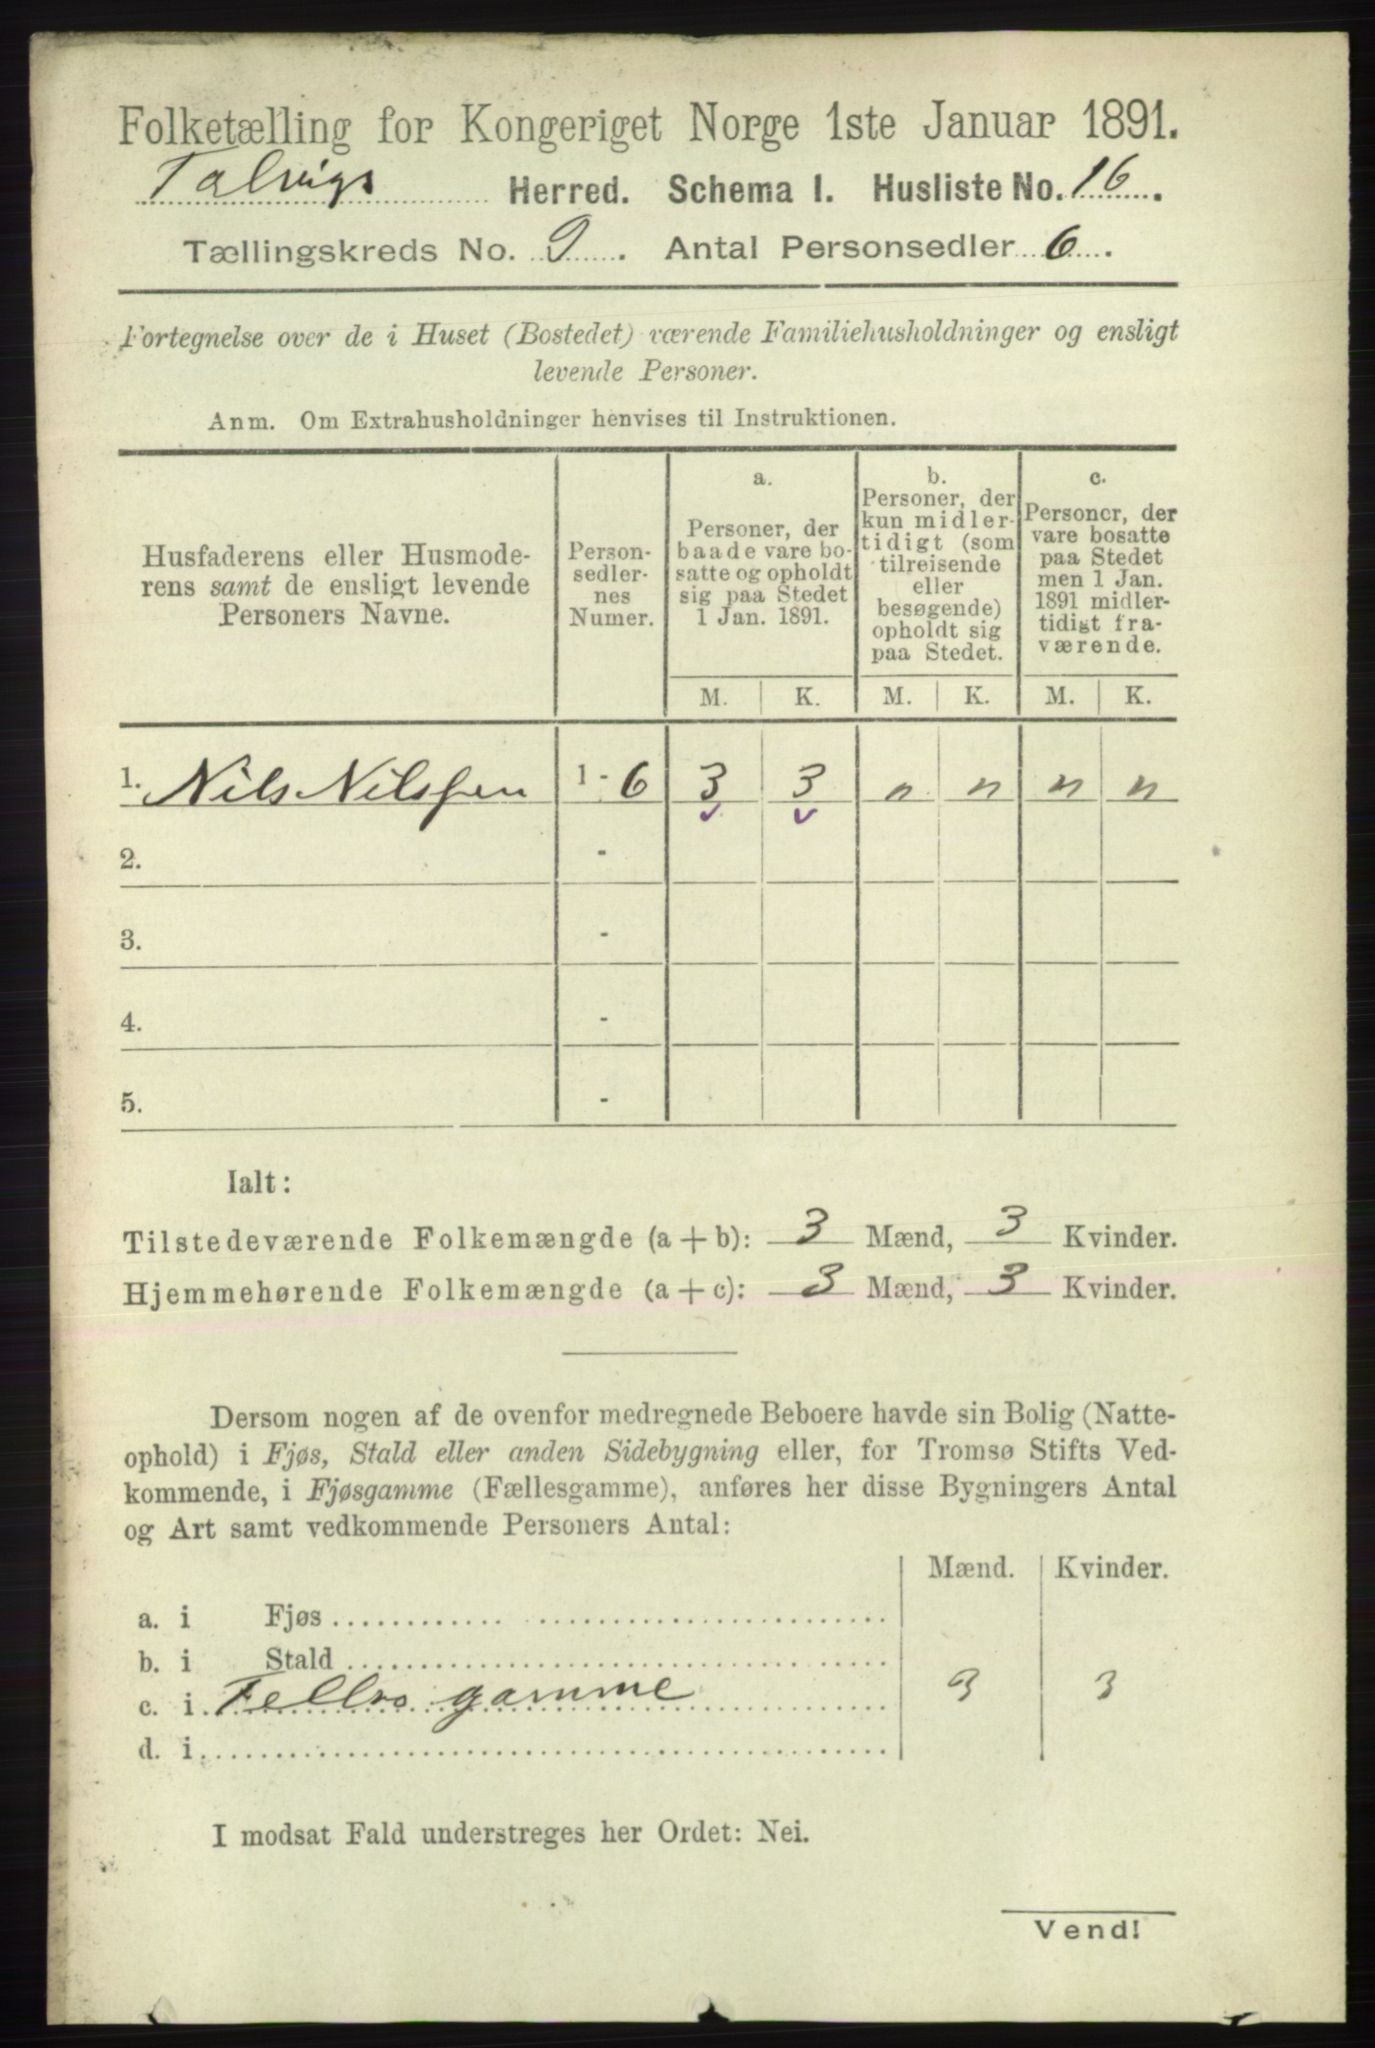 Folketælling for Kongeriget Norge 1ste Januar 1891.
Talvigs Herred. Schema I. Husliste No. 16.
Tællingskreds No. 9. Antal Personsedler 6.
Fortegnelse over de i Huset (Bostedet) værende Familiehusholdninger og ensligt
levende Personer.
Anm. Om Extrahusholdninger henvises til Instruktionen.
Husfaderens eller Husmode-
rens samt de ensligt levende
Personers Navne.
Person-
sedler-
nes
Numer.
a.
Personer, der
baade vare bo-
satte og opholdt
sig paa Stedet
1 Jan. 1891.
b.
Personer, der
kun midler-
tidigt (som
tilreisende
eller
besøgende)
opholdt sig
paa Stedet.
c.
Personer, der
vare bosatte
paa Stedet
men 1 Jan.
1891 midler-
tidigt fra-
værende.
M. K. M. K. M. K.
1. Nils Nilssen 1 - 6 3 3 " " " "
2. -
3. -
4. -
5. -
Ialt:
Tilstedeværende Folkemængde (a + b): 3 Mænd, 3 Kvinder.
Hjemmehørende Folkemængde (a + c): 3 Mænd, 3 Kvinder.
Dersom nogen af de ovenfor medregnede Beboere havde sin Bolig (Natte-
ophold) i Fjøs, Stald eller anden Sidebygning eller, for Tromsø Stifts Ved-
kommende, i Fjøsgamme (Fællesgamme), anføres her disse Bygningers Antal
og Art samt vedkommende Personers Antal:
Mænd. Kvinder.
a. i Fjøs
b. i Stald
c. i Fellss gamme 3 3
d. i
I modsat Fald understreges her Ordet: Nei.
Vend!